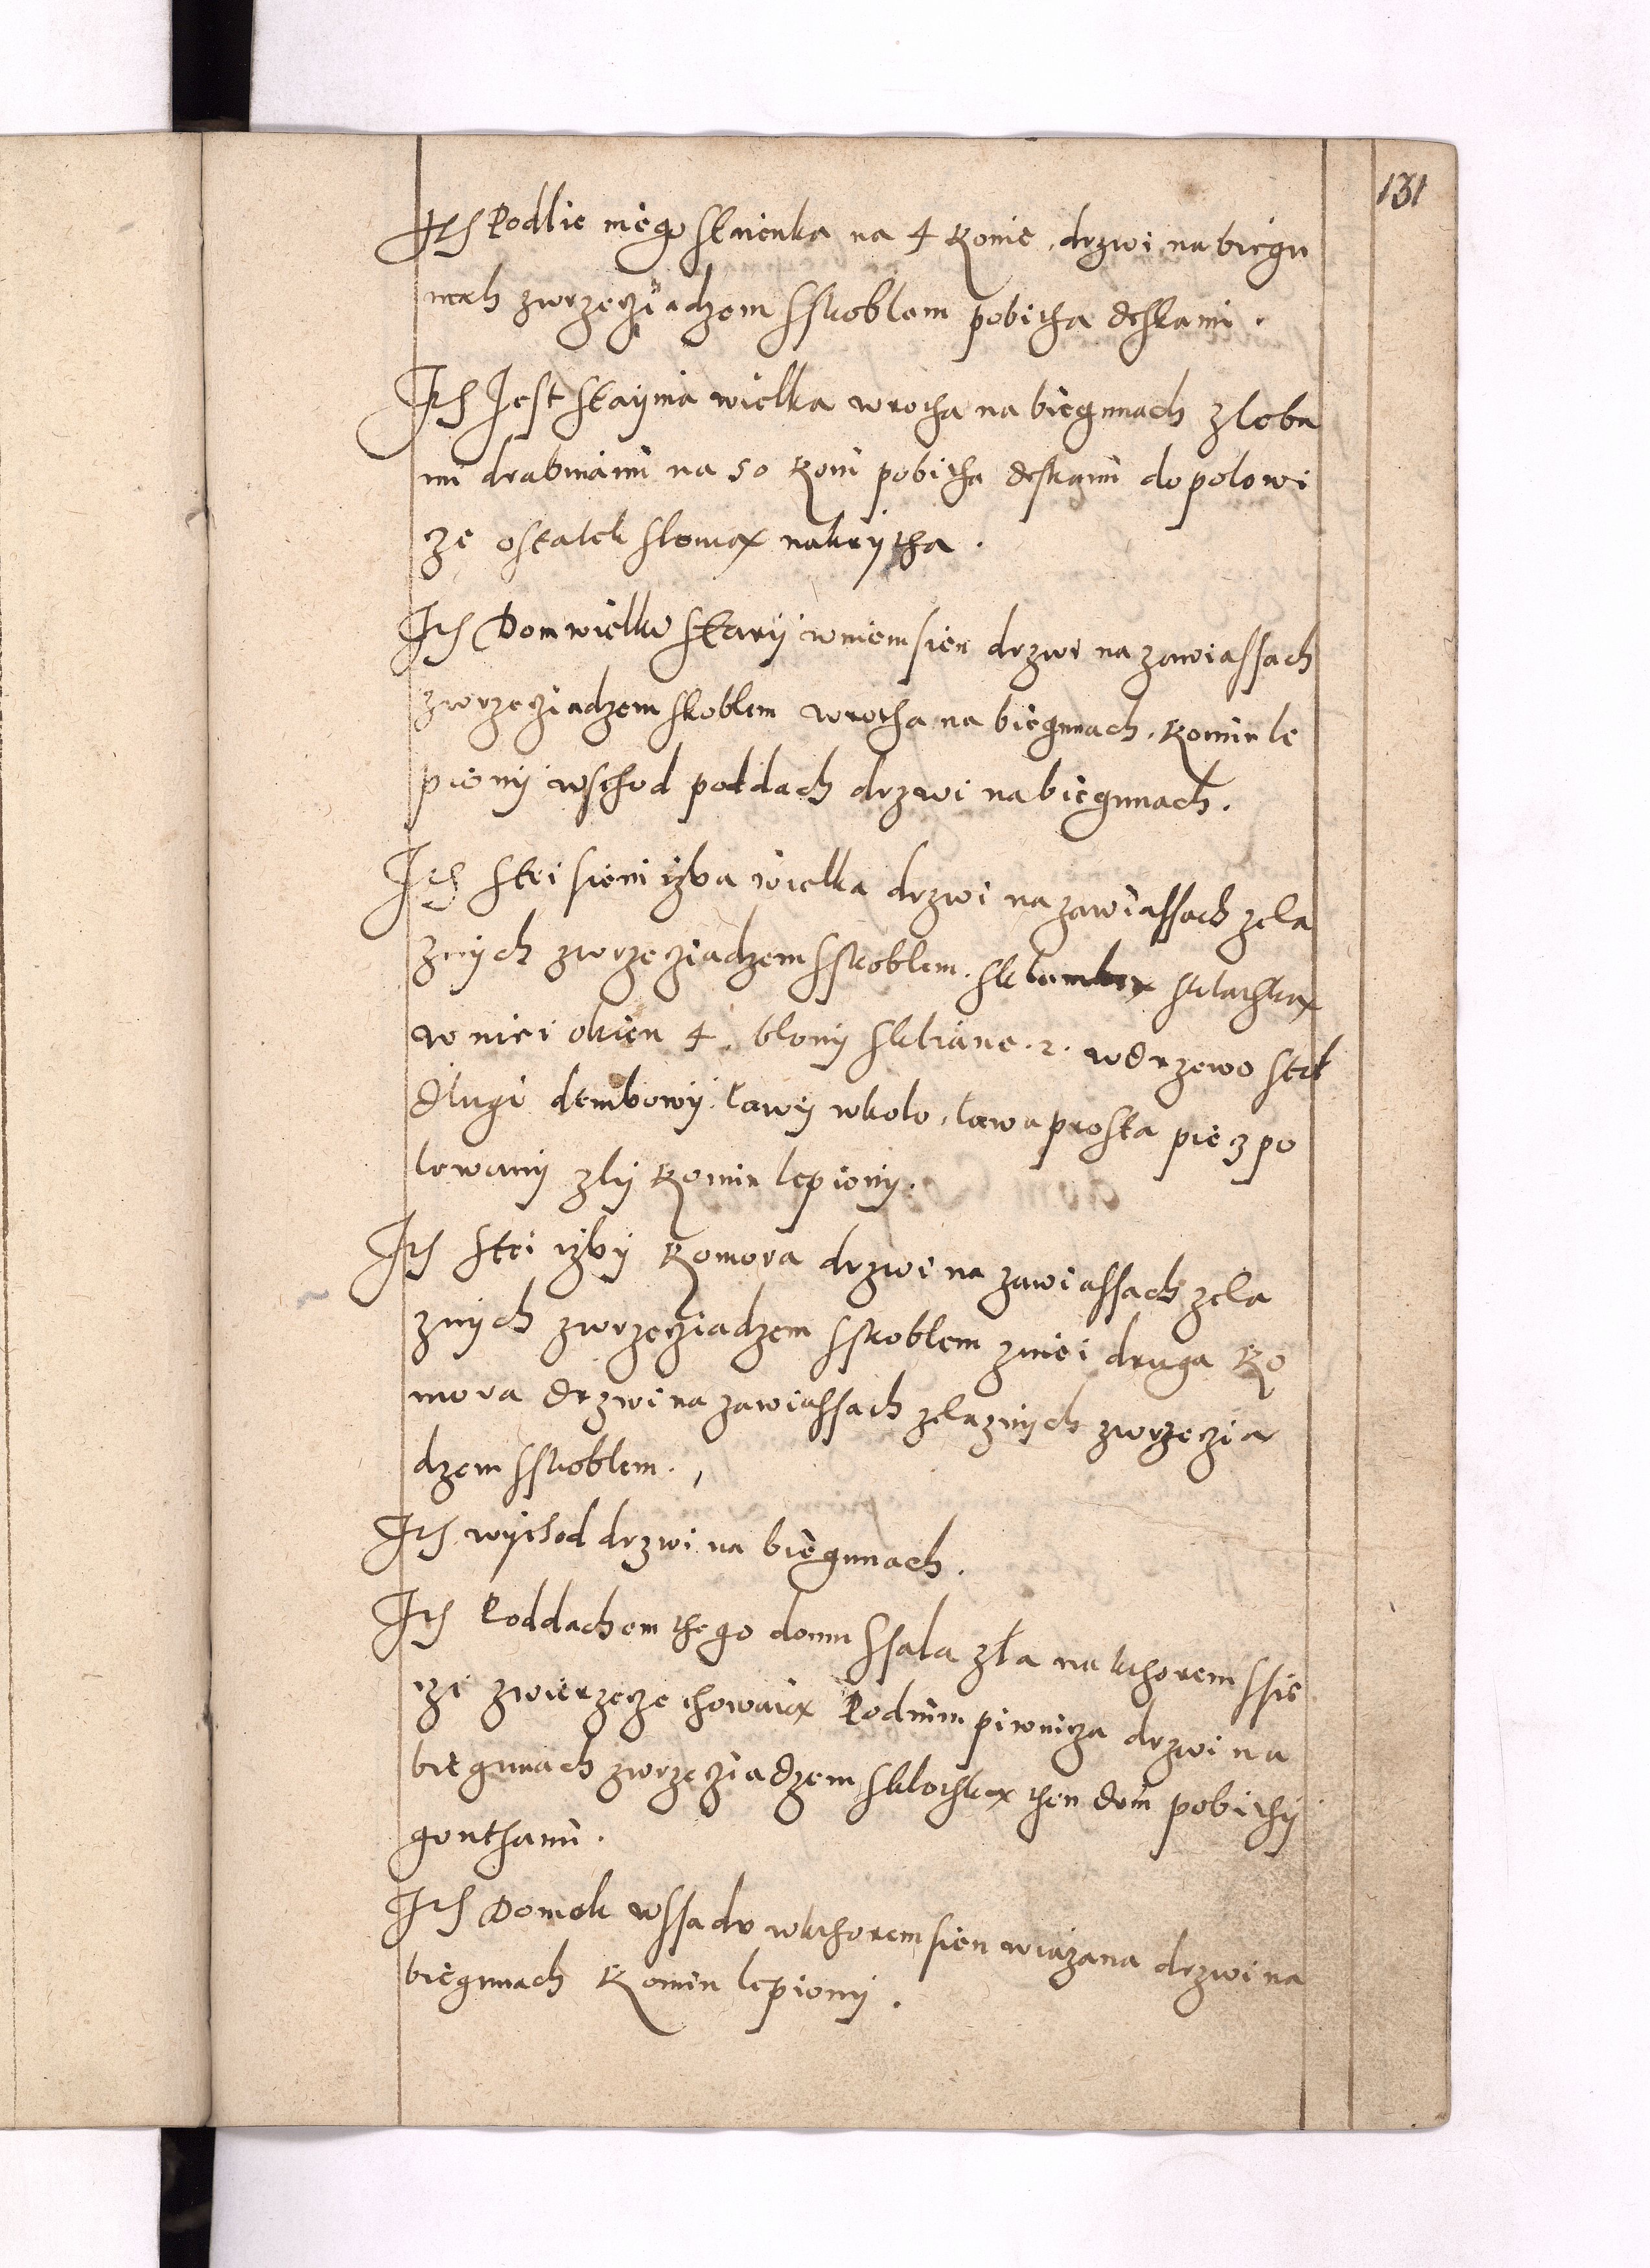 131
Itē Podlie niego staienka na 4 konie, drzwi na biegu
nach zwrzeczıadzem sskoblem pobitha dessami.
Itē Jest stayina wielka wrotha na biegunach zlobu
mi drabinami na 50 koni pobitha deskami dopolowi
ze ostatek slomax nakrÿtha.
Itē Dom wielki starÿ wniem sien drzwi na zawiassach
zwrzecziadzem skoblem wrotha na biegunach, komin le
pionÿ wschod poddach drzwi na biegunach.
Itē stei sieni izba wielka drzwi na zawiassach zela
znÿch zwrzecziadzem sskoblem. sklamkax sklathkax
wniei okien 4. blonÿ sklıane .2. wdrzewo stol
dlugi dembowÿ. lawÿ wkolo, lawa prosta piecz po
lewanÿ zlÿ komin lepionÿ.
Itē stei izbÿ komora drzwi na zawiassach zela
znÿch zwrzecziadzem sskoblem zniei druga ko
mora drzwi na zawiassach zelaznÿch zwrzeczia
dzem sskoblem.
Itē wÿchod drzwi na biegunach.
Itē Poddachem thego domu ssala zła na kthorem ssie
czi zwierzecze chowaiax Podnim piwnicza drzwi na
biegunach zwrzecziadzem sklothkax then dom pobithÿ
gonthami.
Itē Domek wssadu wkthorem sien wiazana drzwi na
biegunach komin lepionÿ.